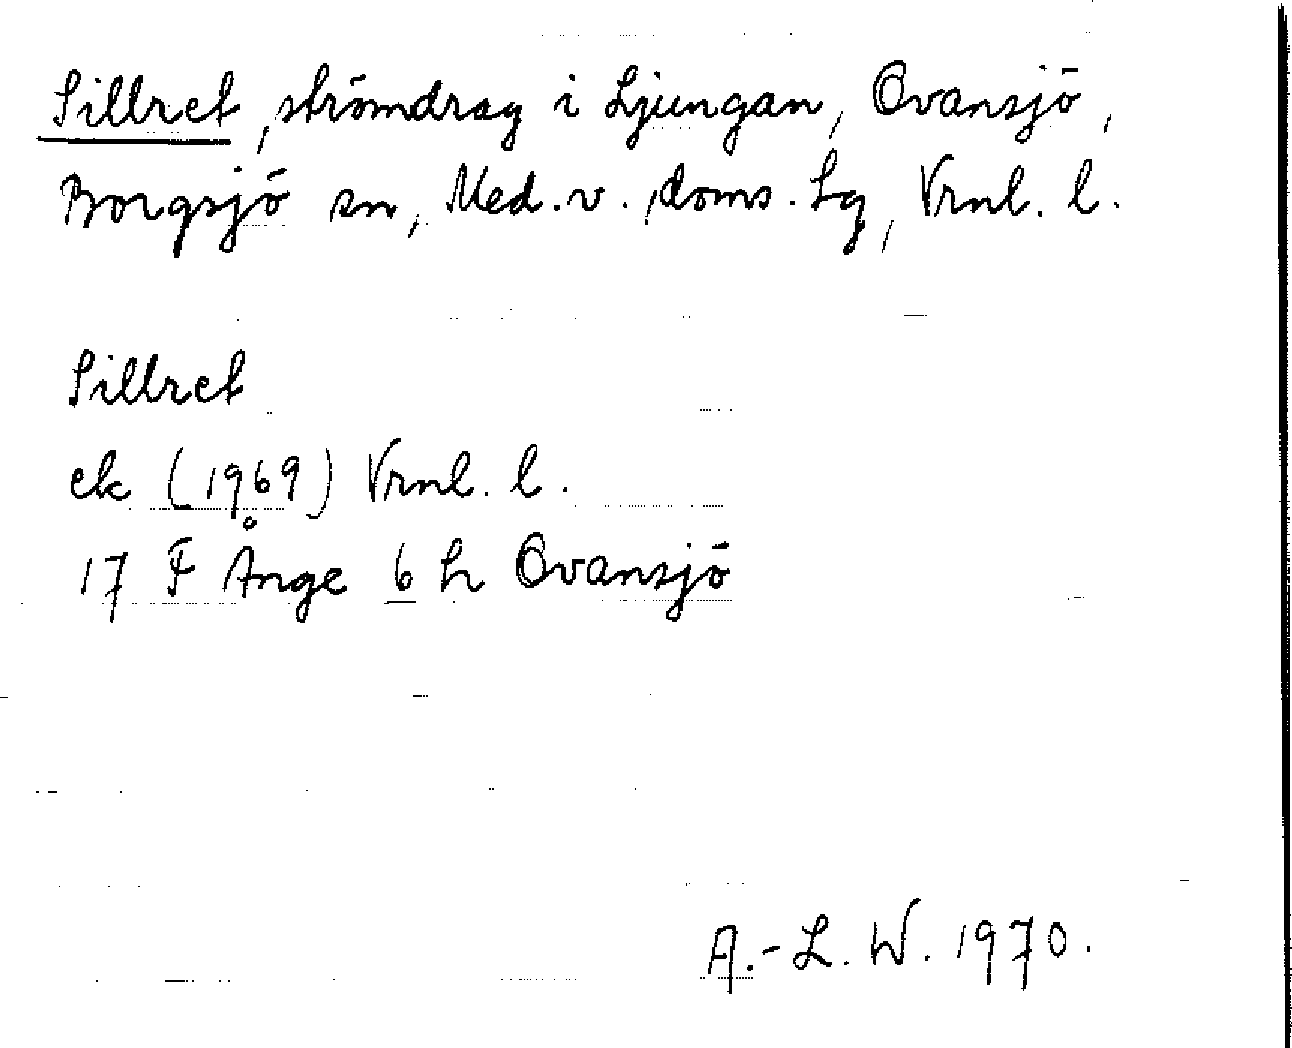 Sillret, strömdrag i Ljungan, Ovansjö,
Borgsjö sn, Med. v. doms. Lg, Vrnl. l.
Sillret
ek (1969) Vrnl. l.
17 F Ånge 6 h Ovansjö
A.-L. W. 1970.